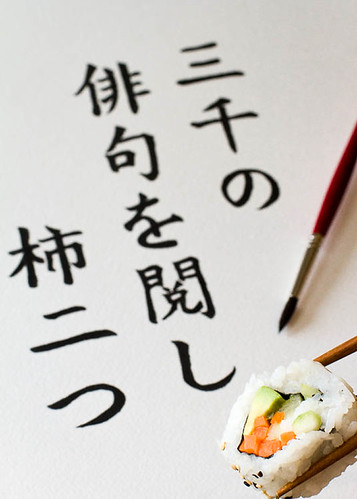 三千の
俳句を閲し
柿二つ